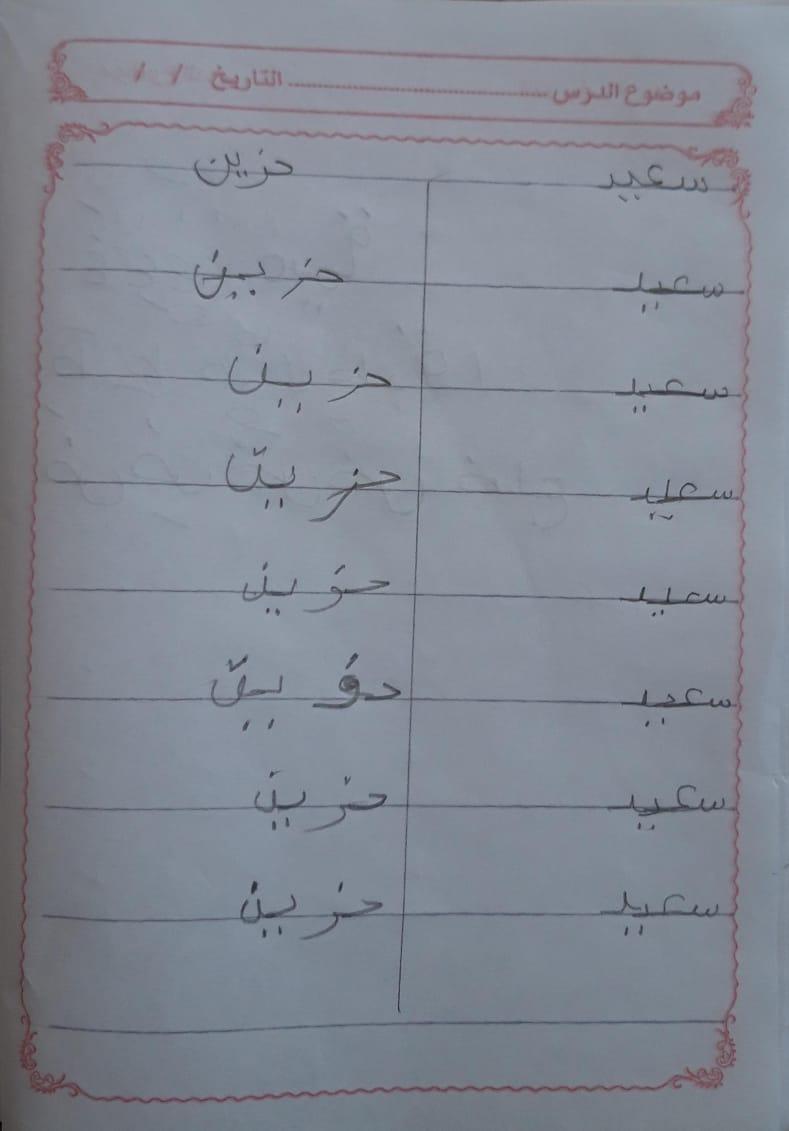 موضوع الدرس ........................ التاريخ / /
سعيد حزين
سعيد حزين
سعيد حزين
سعيد حزين
سعيد حزين
سعيد حزين
سعيد حزين
سعيد حزين